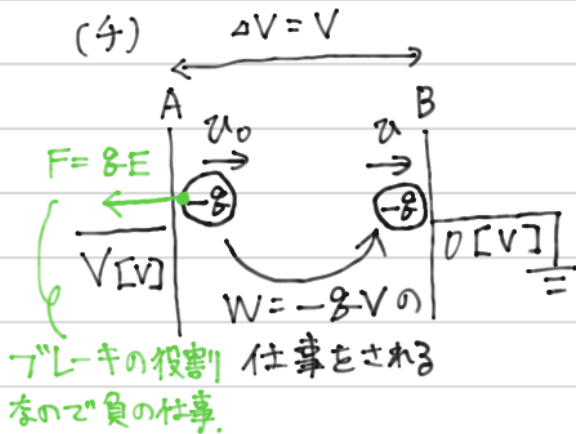 (チ)
ΔV=V
A
B
v₀
v
F=qE
-q
-q
V[V]
0[V]
W=-qVの
仕事をされる
ブレーキの役割
なので負の仕事.